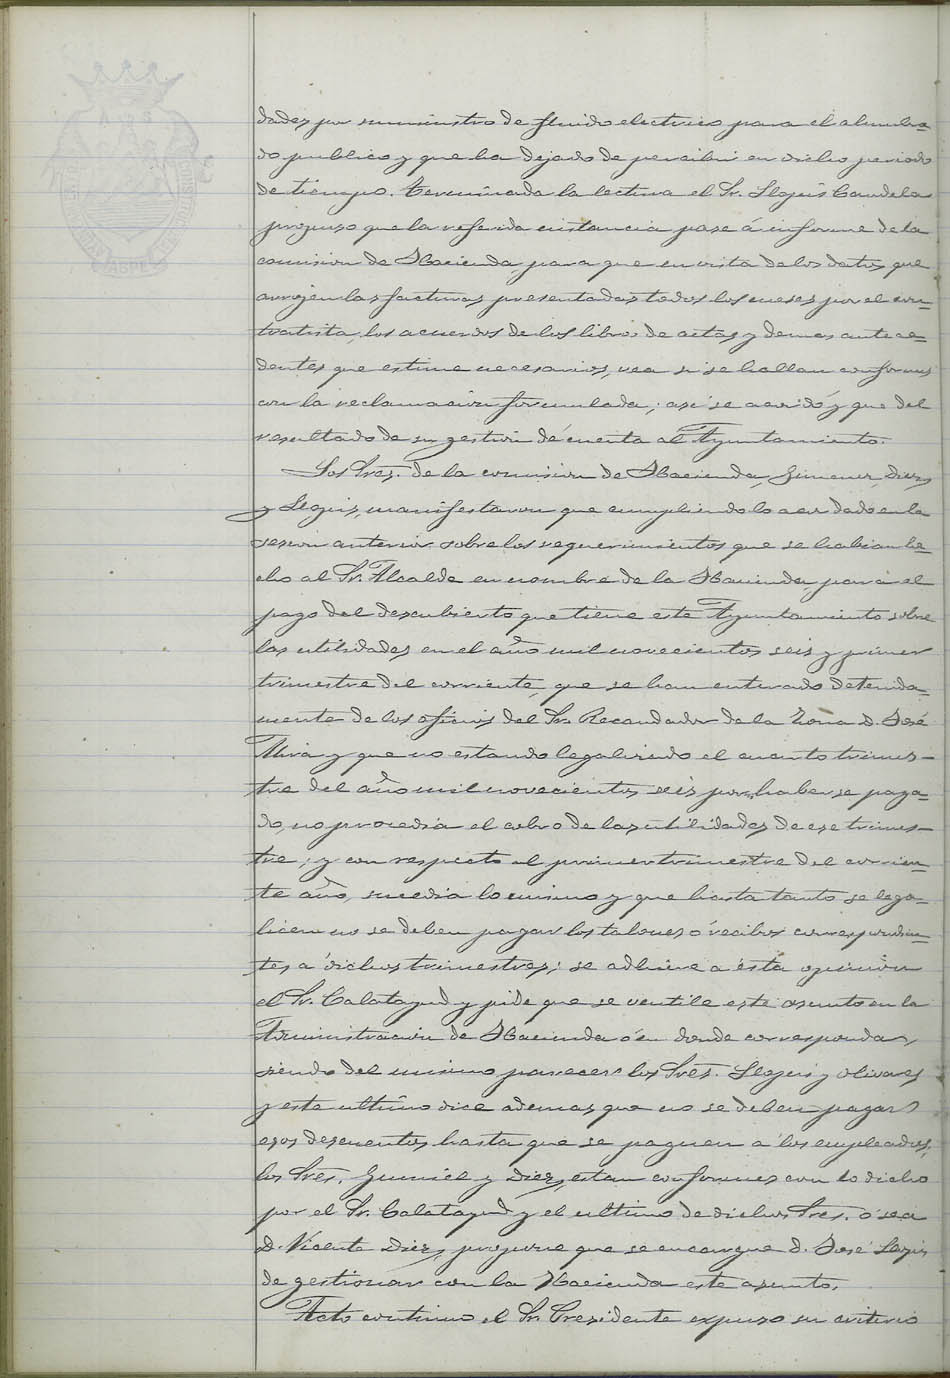 dades por suministro de fluido electrico para el alumbra=
do publico y que ha dejado de percibir en dicho periodo
de tiempo. Terminada la lectura el Sr. Seguí Candela
propuso que la referida instancia pase á informe de la
comision de Hacienda, para que en vista de los datos que
arrojen las facturas presentadas todos los meses por el con=
tratista, los acuerdos de los libros de actas y demas antece=
dentes que estime necesarios, vea si se hallan conformes
con la reclamacion formulada; asi se acordó y que del
resultado de su gestion dé cuenta al Ayuntamiento.
Los Sres. de la comision de Hacienda, Diez
y manifestaron que cumpliendo lo acordado en la
sesion anterior sobre los requerimientos que se habian he=
cho al Sr. Alcalde en nombre de la Hacienda, para el
pago del descubierto que tiene este Ayuntamiento sobre
las utilidades en el año mil novecientos seis y primer
trimestre del corriente, que se han enterado detenida=
mente de los oficios del Sr. Recaudador de la Zona D. José
Mira y que no estando legalizado el cuarto trimes=
tre del año mil novecientos seis por haberse paga=
do, no procedia el cobro de las utilidades de ese trimes=
tre; y con respecto al primer trimestre del corrien=
te año, sucedia lo mismo y que hasta tanto se lega=
licen no se deben pagar los talones ó recibos correspondien=
tes a dichos trimestres; se adhiere a esta opinión
el Sr. Calatayud y pide que se ventile este asunto en la
Administracion de Hacienda ó en donde corresponda,
siendo del mismo parecer los Sres. y Olivares
y este ultimo dice ademas que no se deben pagar
esos descuentos hasta que se paguen a los empleados,
los Sres. y Diez, estan conformes con lo dicho
por el Sr. Calatayud y el ultimo de dichos Sres. ó sea
D. Vicente Diez, propone que se encargue D. José
de gestionar con la Hacienda este asunto.
Acto continuo el Sr. Presidente expuso su criterio
ASPE